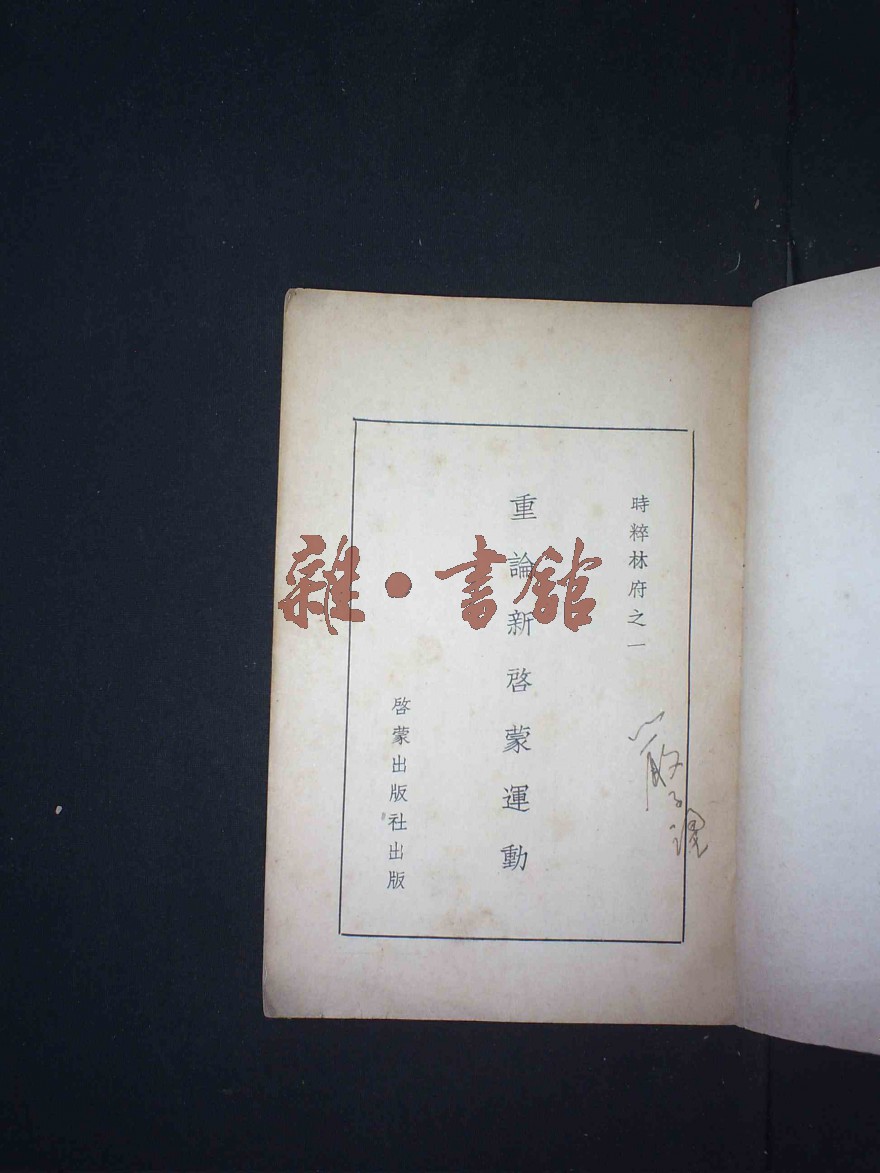 時粹林府之一
重論新啓蒙運動
啓蒙出版社出版
雜·書館